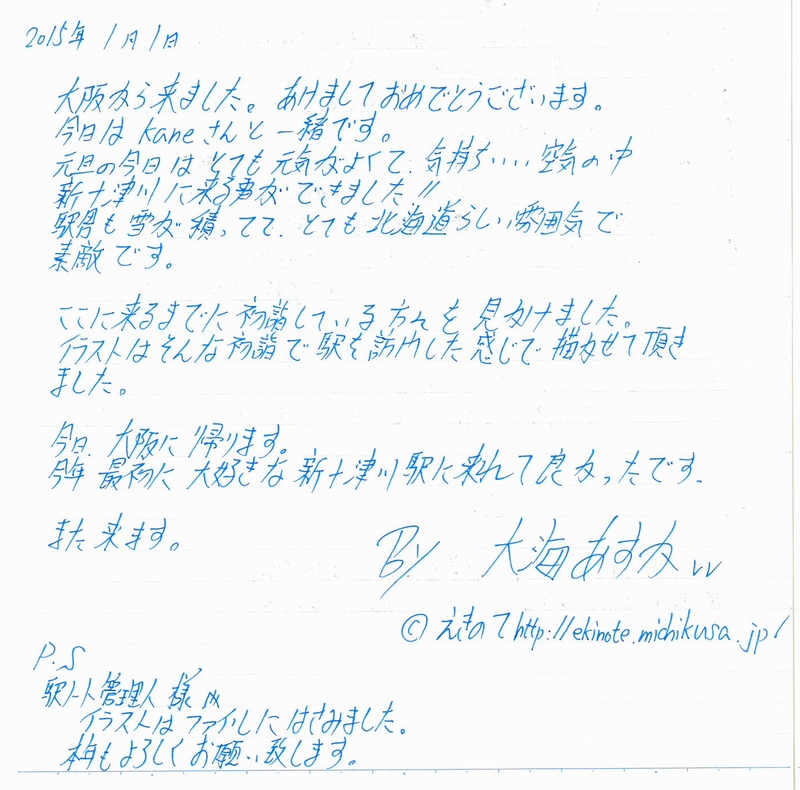 2015年 1月1日
大阪から来ました。あけましておめでとうございます。
今日は Kaneさんと一緒です。
元旦の今日はとても元気がよくて、気持ちいい空気の中
新十津川に来る事ができました!!
駅舎も雪が積ってて、とても北海道らしい雰囲気で
素敵です。
ここに来るまでに初詣している方々を見かけました。
イラストはそんな初詣で駅を訪問した感じで描かせて頂き
ました。
今日、大阪に帰ります。
今年最初に大好きな新十津川駅に来れて良かったです。
また来ます。
By 大海あすか vv
© えきのて http://ekinote.michikusa.jp/
P.S
駅ノート管理人様
イラストはファイルにはさみました。
本年もよろしくお願い致します。